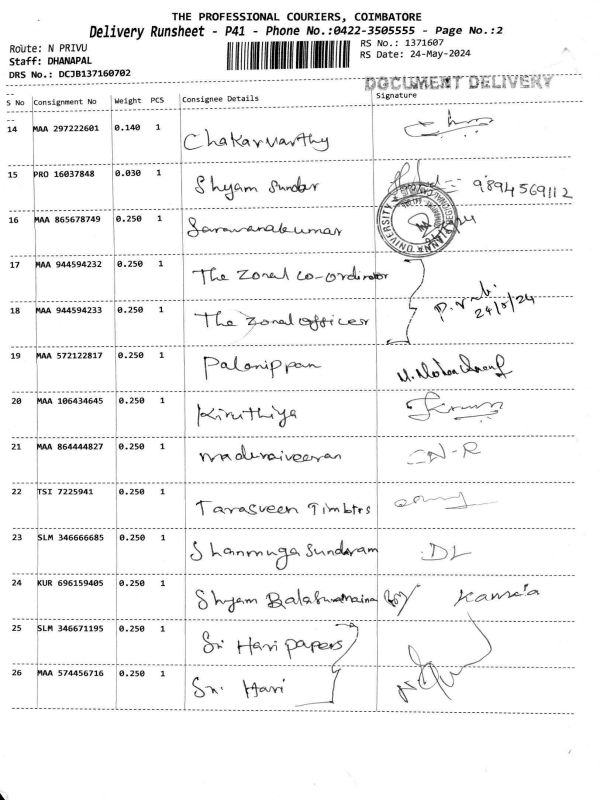 THE PROFESSIONAL COURIERS, COIMBATORE
Delivery Runsheet - P41 - Phone No.:0422-3505555 - Page No.:2
Route: N PRIVU
RS No.: 1371607
Staff: DHANAPAL
RS Date: 24-May-2024
DRS No.: DCJB137160702
DOCUMENT DELIVERY
S No Consignment No Weight PCS Consignee Details Signature
14 MAA 297222601 0.140 1 Chakarvarthy
15 PRO 16037848 0.030 1 Shyam Sundar 9894569112
16 MAA 865678749 0.250 1 Saravanakumar
UNIVERSITY
17 MAA 944594232 0.250 1 The Zonal co-ordinator
18 MAA 944594233 0.250 1 The Zonal officer 24/5/24
19 MAA 572122817 0.250 1 Palanippan
20 MAA 106434645 0.250 1 Kiruthiya
21 MAA 864444827 0.250 1 maduraiveeran
22 TSI 7225941 0.250 1 Tarasveen Timbers
23 SLM 346666685 0.250 1 Shanmuga Sundaram DL
24 KUR 696159405 0.250 1 Shyam
25 SLM 346671195 0.250 1 Sri Hari papers
26 MAA 574456716 0.250 1 Sri Hari